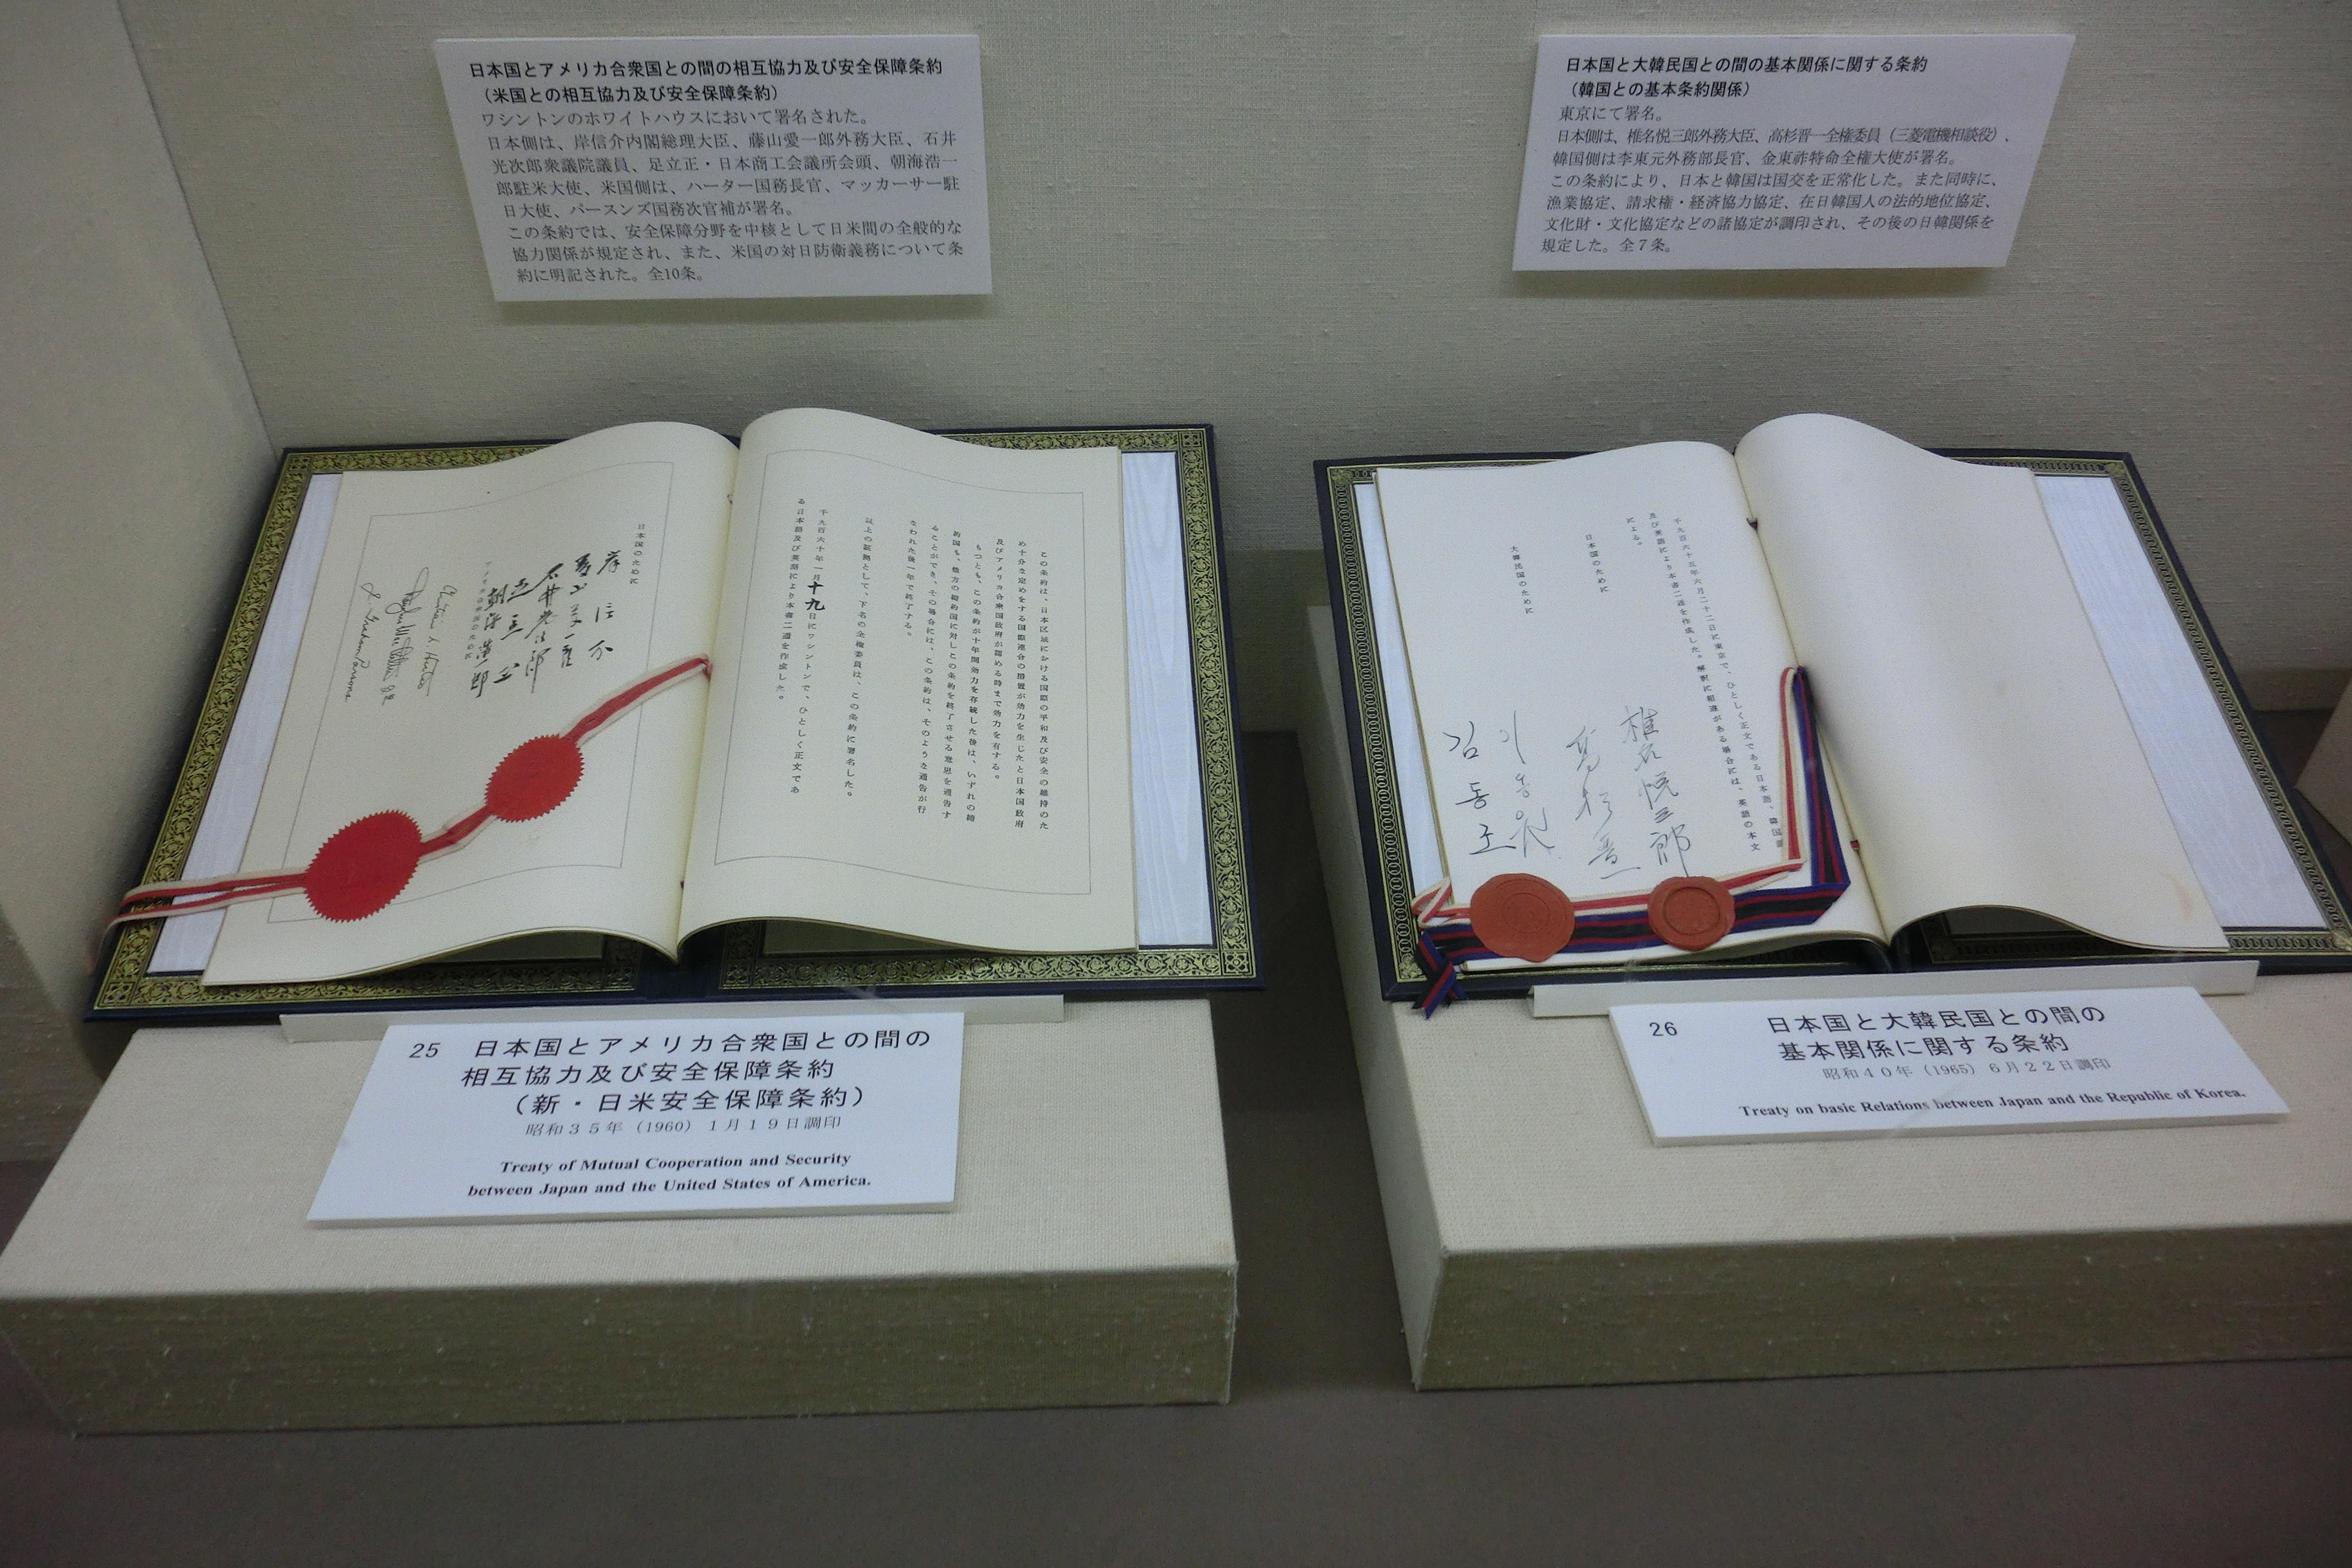 日本国とアメリカ合衆国との間の相互協力及び安全保障条約
（米国との相互協力及び安全保障条約）
ワシントンのホワイトハウスにおいて署名された。
日本側は、岸信介内閣総理大臣、藤山愛一郎外務大臣、石井
光次郎衆議院議員、足立正・日本商工会議所会頭、朝海浩一
郎駐米大使、米国側は、ハーター国務長官、マッカーサー駐
日大使、パースンズ国務次官補が署名。
この条約では、安全保障分野を中核として日米間の全般的な
協力関係が規定され、また、米国の対日防衛義務について条
約に明記された。全10条。
日本国と大韓民国との間の基本関係に関する条約
（韓国との基本条約関係）
東京にて署名。
日本側は、椎名悦三郎外務大臣、高杉晋一全権委員（三菱電機相談役）、
韓国側は李東元外務部長官、金東祚特命全権大使が署名。
この条約により、日本と韓国は国交を正常化した。また同時に、
漁業協定、請求権・経済協力協定、在日韓国人の法的地位協定、
文化財・文化協定などの諸協定が調印され、その後の日韓関係を
規定した。全７条。
この条約は、日本区域における国際の平和及び安全の維持のた
め十分な定めをする国際連合の措置が効力を生じたと日本国政府
及びアメリカ合衆国政府が認める時まで効力を有する。
もつとも、この条約が十年間効力を存続した後は、いずれの締
約国も、他方の締約国に対しこの条約を終了させる意思を通告す
ることができ、その場合には、この条約は、そのような通告が行
なわれた後一年で終了する。
以上の証拠として、下名の全権委員は、この条約に署名した。
千九百六十年一月十九日にワシントンで、ひとしく正文であ
る日本語及び英語により本書二通を作成した。
日本国のために
岸信介
藤山愛一郎
石井光次郎
足立正
朝海浩一郎
アメリカ合衆国のために
千九百六十五年六月二十二日に東京で、ひとしく正文である日本語、韓国語
及び英語により本書二通を作成した。解釈に相違がある場合には、英語の本文
による。
日本国のために
椎名悦三郎
高杉晋一
大韓民国のために
이동원
김동조
25 日本国とアメリカ合衆国との間の
相互協力及び安全保障条約
（新・日米安全保障条約）
昭和３５年（1960）１月１９日調印
Treaty of Mutual Cooperation and Security
between Japan and the United States of America.
26 日本国と大韓民国との間の
基本関係に関する条約
昭和４０年（1965）６月２２日調印
Treaty on basic Relations between Japan and the Republic of Korea.